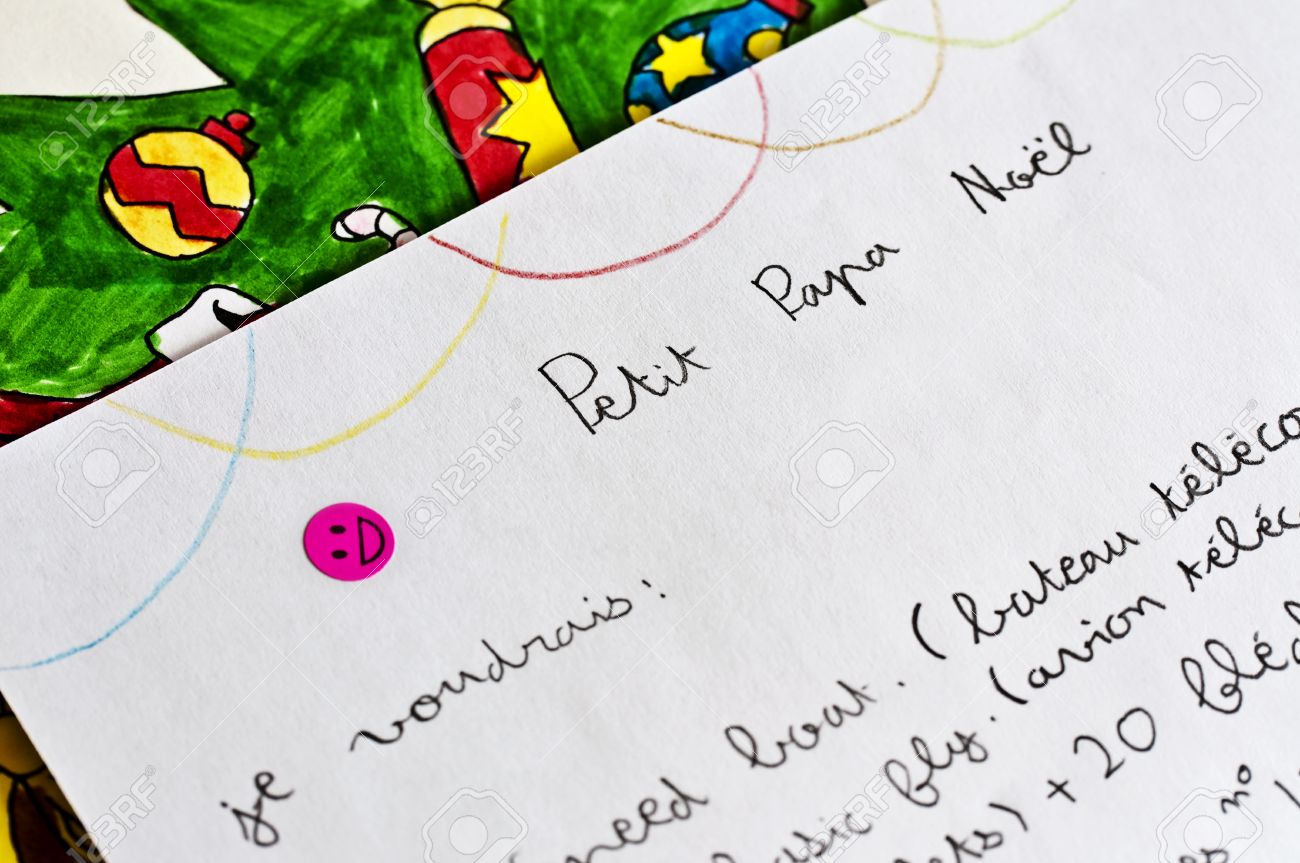 Petit Papa Noël
je voudrais:
need boat. (bateau téléco
fly. (avion téléc
+ 20
n°